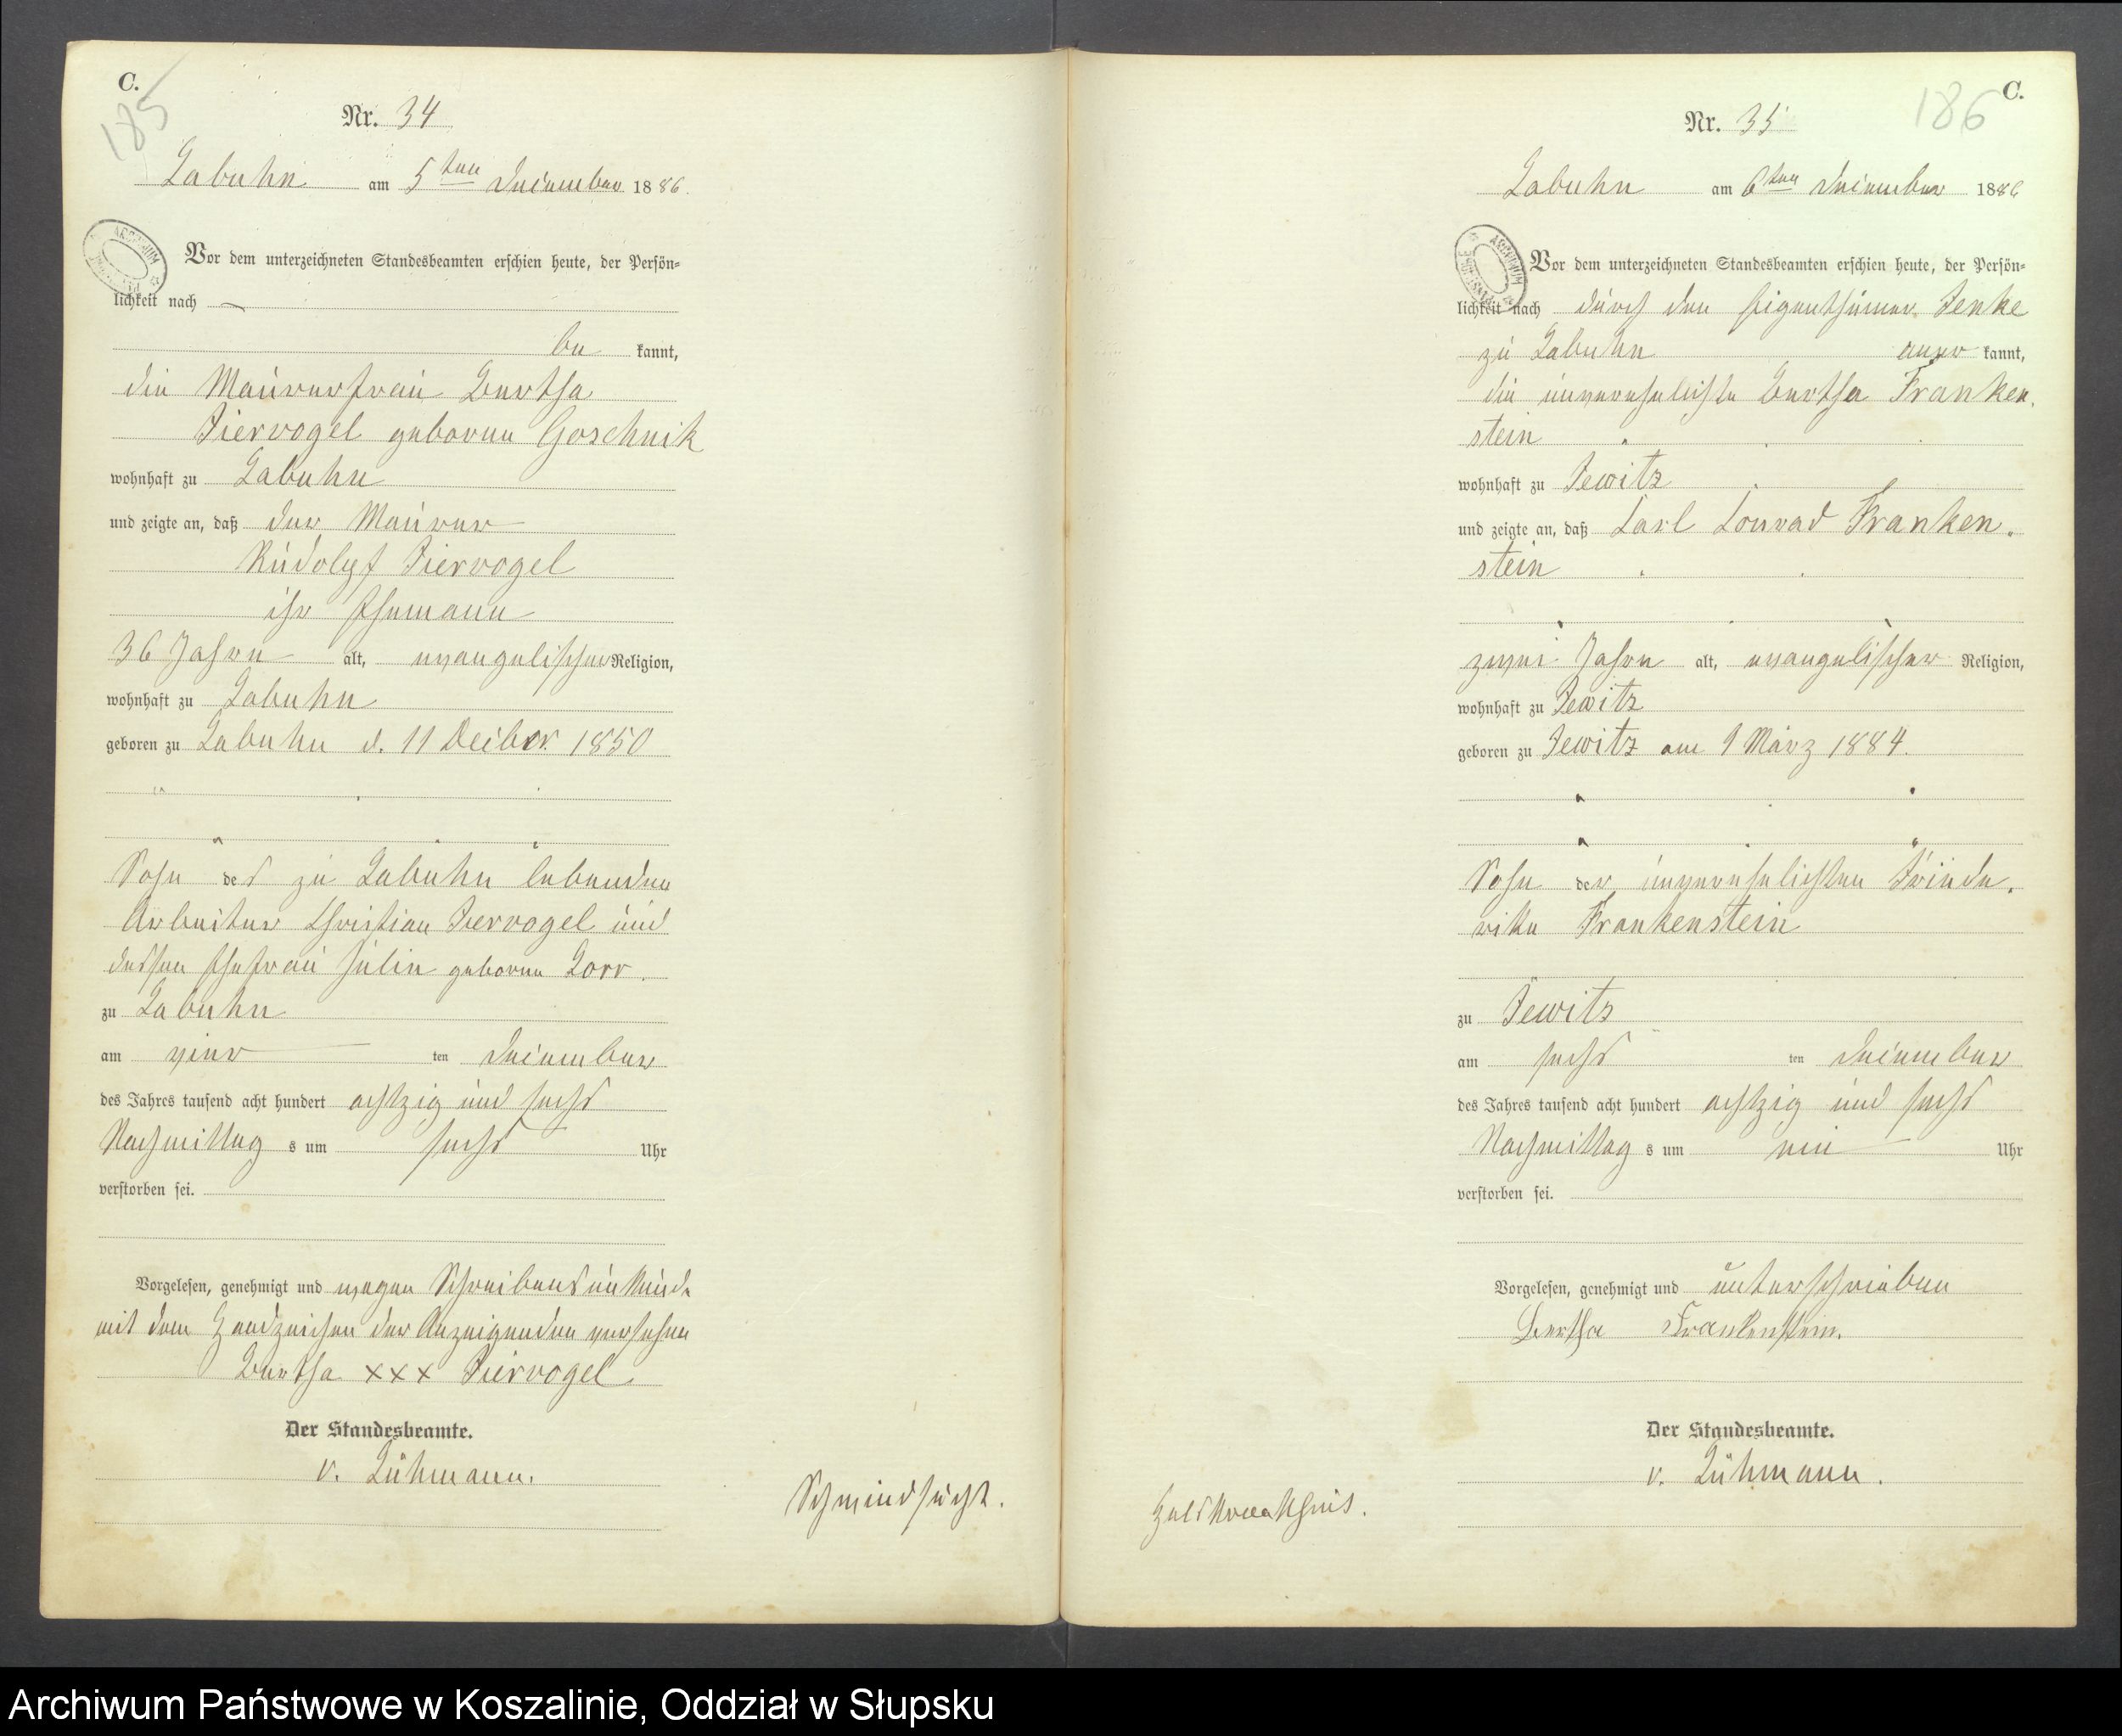 C.
185
Nr. 34
Labuhn am 5ten Dezember 1886.
Vor dem unterzeichneten Standesbeamten erschien heute, der Persön=
lichkeit nach
be kannt,
die Maurerfrau Bertha
Ziervogel geborne Goschnik
wohnhaft zu Labuhn
und zeigte an, daß der Maurer
Rudolph Ziervogel
ihr Ehemann
36 Jahre alt, evangelischer Religion,
wohnhaft zu Labuhn
geboren zu Labuhn d. 11 Decbr. 1850
Sohn des zu Labuhn lebenden
Arbeiter Christian Ziervogel und
dessen Ehefrau geborne Lorr.
zu Labuhn
am vier ten Dezember
des Jahres tausend acht hundert achtzig und sechs
Nachmittag s um sechs Uhr
verstorben sei.
Vorgelesen, genehmigt und wegen Schreibensunkunde
mit dem Handzeichen der Anzeigenden versehen
Bertha xxx Ziervogel.
Der Standesbeamte.
v. Lühmann.
Schwindsucht.
C.
186
Nr. 35
Labuhn am 6ten Dezember 1886
Vor dem unterzeichneten Standesbeamten erschien heute, der Persön=
lichkeit nach durch den Eigenthümer Jenke
zu Labuhn aner kannt,
die unverehelichte Bertha Franken.
stein
wohnhaft zu Jewitz
und zeigte an, daß Carl Conrad Franken.
stein
zwei Jahre alt, evangelischer Religion,
wohnhaft zu Jewitz
geboren zu Jewitz am 9 März 1884.
Sohn der unverehelichten Friede.
rike Frankenstein
zu Jewitz
am sechs ten Dezember
des Jahres tausend acht hundert achtzig und sechs
Nachmittag s um ein Uhr
verstorben sei.
Vorgelesen, genehmigt und unterschrieben
Bertha Frankenstein.
Der Standesbeamte.
v. Lühmann.
Halskrankheit.
Archiwum Państwowe w Koszalinie, Oddział w Słupsku